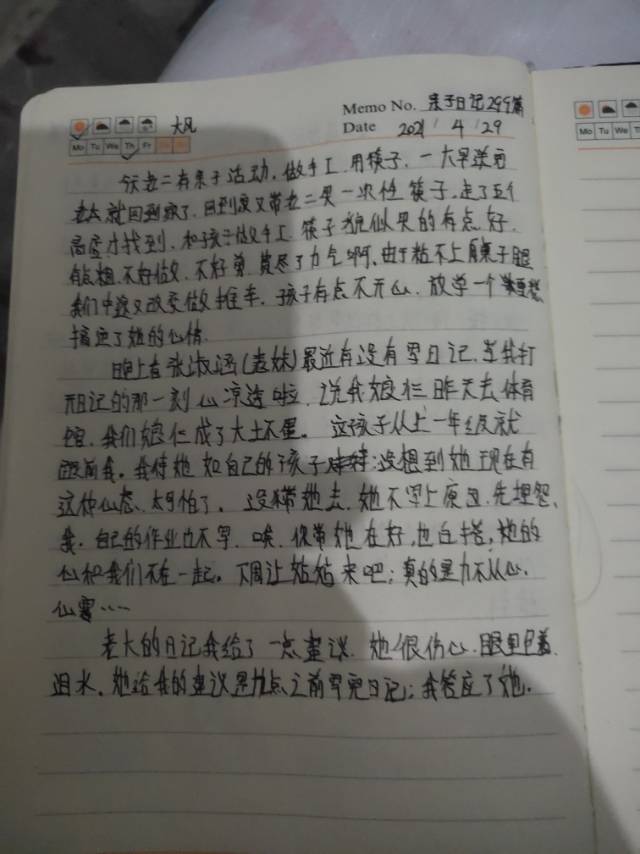 Memo No. 亲子日记299篇
大风
Mo Tu We Th Fr Sa Su
Date 2021 / 4 / 29
今天老二有亲子活动，做手工，用筷子，一大早送完
老大就回到家了，回到家又带老二买一次性筷子，走了五个
商店才找到，和孩子做手工，筷子貌似买的有点好，
有点粗，不好做，不好剪，费尽了力气啊，由于粘不上桌子腿
我们中途又改变做推车，孩子有点不开心，放学一个
搞定了她的心情.
晚上看张淑涵(表妹)最近有没有写日记，当我打
开日记的那一刻心凉透啦，说我娘仨昨天去体育
馆，我们娘仨成了大坏蛋。这孩子从上一年级就
跟着我，我待她如自己的孩子，没想到她现在有
这种心态，太可怕了。没带她去，她不写上原因，先埋怨
我，自己的作业也不写，唉，你带她在好，也白搭，她的
心和我们不在一起。下周让姑姑来吧；真的是力不从心，
心寒……
老大的日记我给了一点建议，她很伤心，眼里包着
泪水，她给我的建议是九点之前写完日记；我答应了她.
Mo Tu We